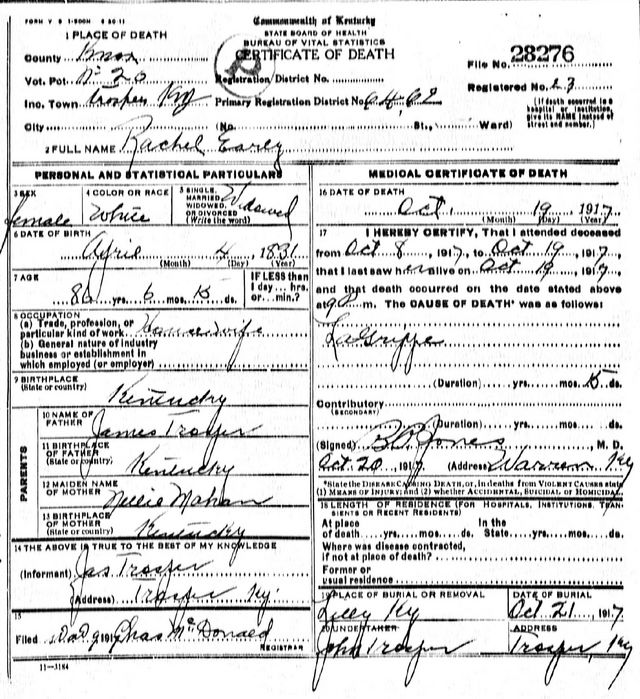 FORM V S 1-500M 6 30 11
Commonwealth of Kentucky
STATE BOARD OF HEALTH
BUREAU OF VITAL STATISTICS
CERTIFICATE OF DEATH
1 PLACE OF DEATH
County Knox
Vot. Pct. No 20
Registration District No.
File No. 28276
Registered No. 23
Inc. Town Trosper Ky
Primary Registration District No. 6462
(If death occurred in a hospital or institution, give its NAME instead of street and number.)
City (No. St., Ward)
2 FULL NAME Rachel Early
PERSONAL AND STATISTICAL PARTICULARS
3 SEX
female
4 COLOR OR RACE
White
5 SINGLE, MARRIED, WIDOWED, OR DIVORCED (Write the word)
Widowed
6 DATE OF BIRTH
April 4, 1831
(Month) (Day) (Year)
7 AGE
86 yrs. 6 mos. 15 ds.
IF LESS than 1 day.... hrs. or....min.?
8 OCCUPATION
(a) Trade, profession, or
particular kind of work Housewife
(b) General nature of industry
business or establishment in
which employed (or employer)
9 BIRTHPLACE
(State or country)
Kentucky
PARENTS
10 NAME OF FATHER
James Trosper
11 BIRTHPLACE OF FATHER
(State or country)
Kentucky
12 MAIDEN NAME OF MOTHER
Nellie Mahan
13 BIRTHPLACE OF MOTHER
(State or country)
Kentucky
14 THE ABOVE IS TRUE TO THE BEST OF MY KNOWLEDGE
(Informant) Jas Trosper
(Address) Trosper Ky.
15
Filed 1917 Chas McDonald
REGISTRAR
11-3184
MEDICAL CERTIFICATE OF DEATH
16 DATE OF DEATH
Oct. 19, 1917
(Month) (Day) (Year)
17 I HEREBY CERTIFY, That I attended deceased
from Oct 8, 1917, to Oct 19, 1917,
that I last saw her alive on Oct 19, 1917,
and that death occurred on the date stated above
at 9 P m. The CAUSE OF DEATH* was as follows:
LaGrippe
(Duration) yrs. mos. 15 ds.
Contributory
(SECONDARY)
(Duration) yrs. mos. ds.
(Signed) Jones M. D.
Oct 20, 1917 (Address) Warren Ky
*State the DISEASE CAUSING DEATH, or, in deaths from VIOLENT CAUSES state
(1) MEANS OF INJURY; and (2) whether ACCIDENTAL, SUICIDAL or HOMICIDAL.
18 LENGTH OF RESIDENCE (FOR HOSPITALS, INSTITUTIONS, TRANSIENTS OR RECENT RESIDENTS)
At place
of death yrs. mos. ds.
In the
State yrs. mos. ds.
Where was disease contracted,
if not at place of death?
Former or
usual residence
19 PLACE OF BURIAL OR REMOVAL
Lilly Ky
DATE OF BURIAL
Oct 21, 1917
20 UNDERTAKER
John Trosper
ADDRESS
Trosper, Ky